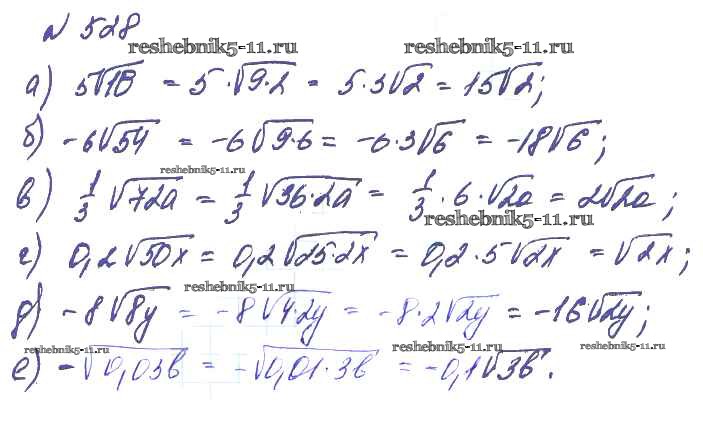 № 528
reshebnik5-11.ru reshebnik5-11.ru
а) 5√18 = 5·√9·2 = 5·3√2 = 15√2;
б) -6√54 = -6√9·6 = -6·3√6 = -18√6;
reshebnik5-11.ru
в) 1/3 √72a = 1/3 √36·2a = 1/3·6·√2a = 2√2a;
reshebnik5-11.ru
г) 0,2√50x = 0,2√25·2x = 0,2·5√2x = √2x;
reshebnik5-11.ru
д) -8√8y = -8√4·2y = -8·2√2y = -16√2y;
reshebnik5-11.ru reshebnik5-11.ru reshebnik5-11.ru
е) -√0,03b = -√0,01·3b = -0,1√3b.